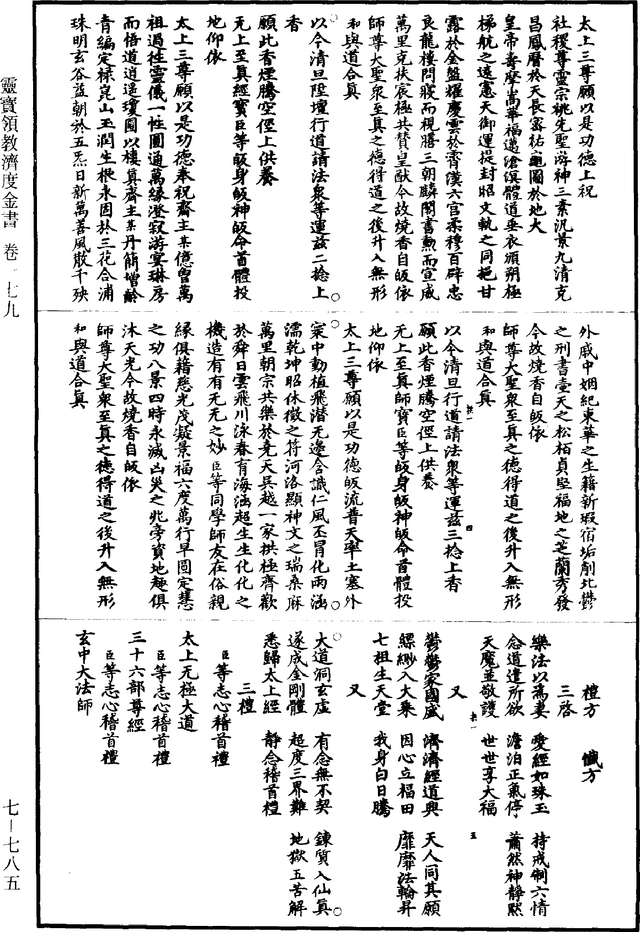 太上三尊願以是功德上祝
社稷尊靈宗祧先聖游神三素汎景九清克
昌鳳曆於天長密祐龜圖於地久
皇帝壽摩嵩華福邁滄溟體道垂衣頒朔極
梯航之遠憲天御運提封昭文軌之同挹甘
露於金盤耀慶雲於霄漢六宮柔穆百辟忠
良龍樓問寢而視膳三朝麟閣書勳而宣威
萬里克扶宸極共贊皇猷令故燒香自皈依
師尊大聖衆至真之德得道之後升入無形
和與道合真
以今清旦陞壇行道請法衆等運茲二捻上
香
願此香煙騰空徑上供養
无上至真經寶臣等皈身皈神皈命首體投
地仰依
太上三尊願以是功德奉祝齋主某億曾萬
祖過往靈儀一性圓通萬緣澄寂游宴琳房
而悟道逍遥瓊圃以棲真齋主某丹簡增齡
青編定祿崑山玉潤生根永固於三花合浦
珠明玄谷益朝於五炁日新萬善風散千殃
外戚中姻紀東華之生籍新瑕宿垢削北酆
之刑書臺天之松栢貞堅福地之芝蘭秀發
令故燒香自皈依
師尊大聖衆至真之德得道之後升入無形
和與道合真
以今清旦行道請法衆等運茲三捻上香
願此香煙騰空徑上供養
无上至真師寶臣等皈身皈神皈命首體投
地仰依
太上三尊願以是功德皈流普天率土塞外
寰中動植飛潛无邊含識仁風丕冒化雨涵
濡乾坤昭休徵之符河洛顯神文之瑞桑麻
萬里朝宗共樂於堯天吳越一家拱極齊歡
於舜日雲飛川泳春育海涵超生生化化之
機造有有无无之妙臣等同學師友在俗親
緣俱籍慈光茂凝景福六度萬行早圓定慧
之功八景四時永滅凶災之兆旁資地趣俱
沐天光令故燒香自皈依
師尊大聖衆至真之德得道之後升入無形
和與道合真
禮方 懺方
三啓
樂法以爲妻 愛經如珠玉 持戒制六情
念道遣所欲 澹泊正氣停 蕭然神靜默
天魔並敬護 世世享大福
又
鬱鬱家國盛 濟濟經道興 天人同其願
縹緲入大乘 因心立福田 靡靡法輪昇
七祖生天堂 我身白日騰
又
大道洞玄虛 有念無不契 鍊質入仙真
遂成金剛體 超度三界難 地獄五苦解
悉歸太上經 靜念稽首禮
三禮
臣等志心稽首禮
太上无極大道
臣等志心稽首禮
三十六部尊經
臣等志心稽首禮
玄中大法師
靈寶領教濟度金書 卷一七九
七－七八五